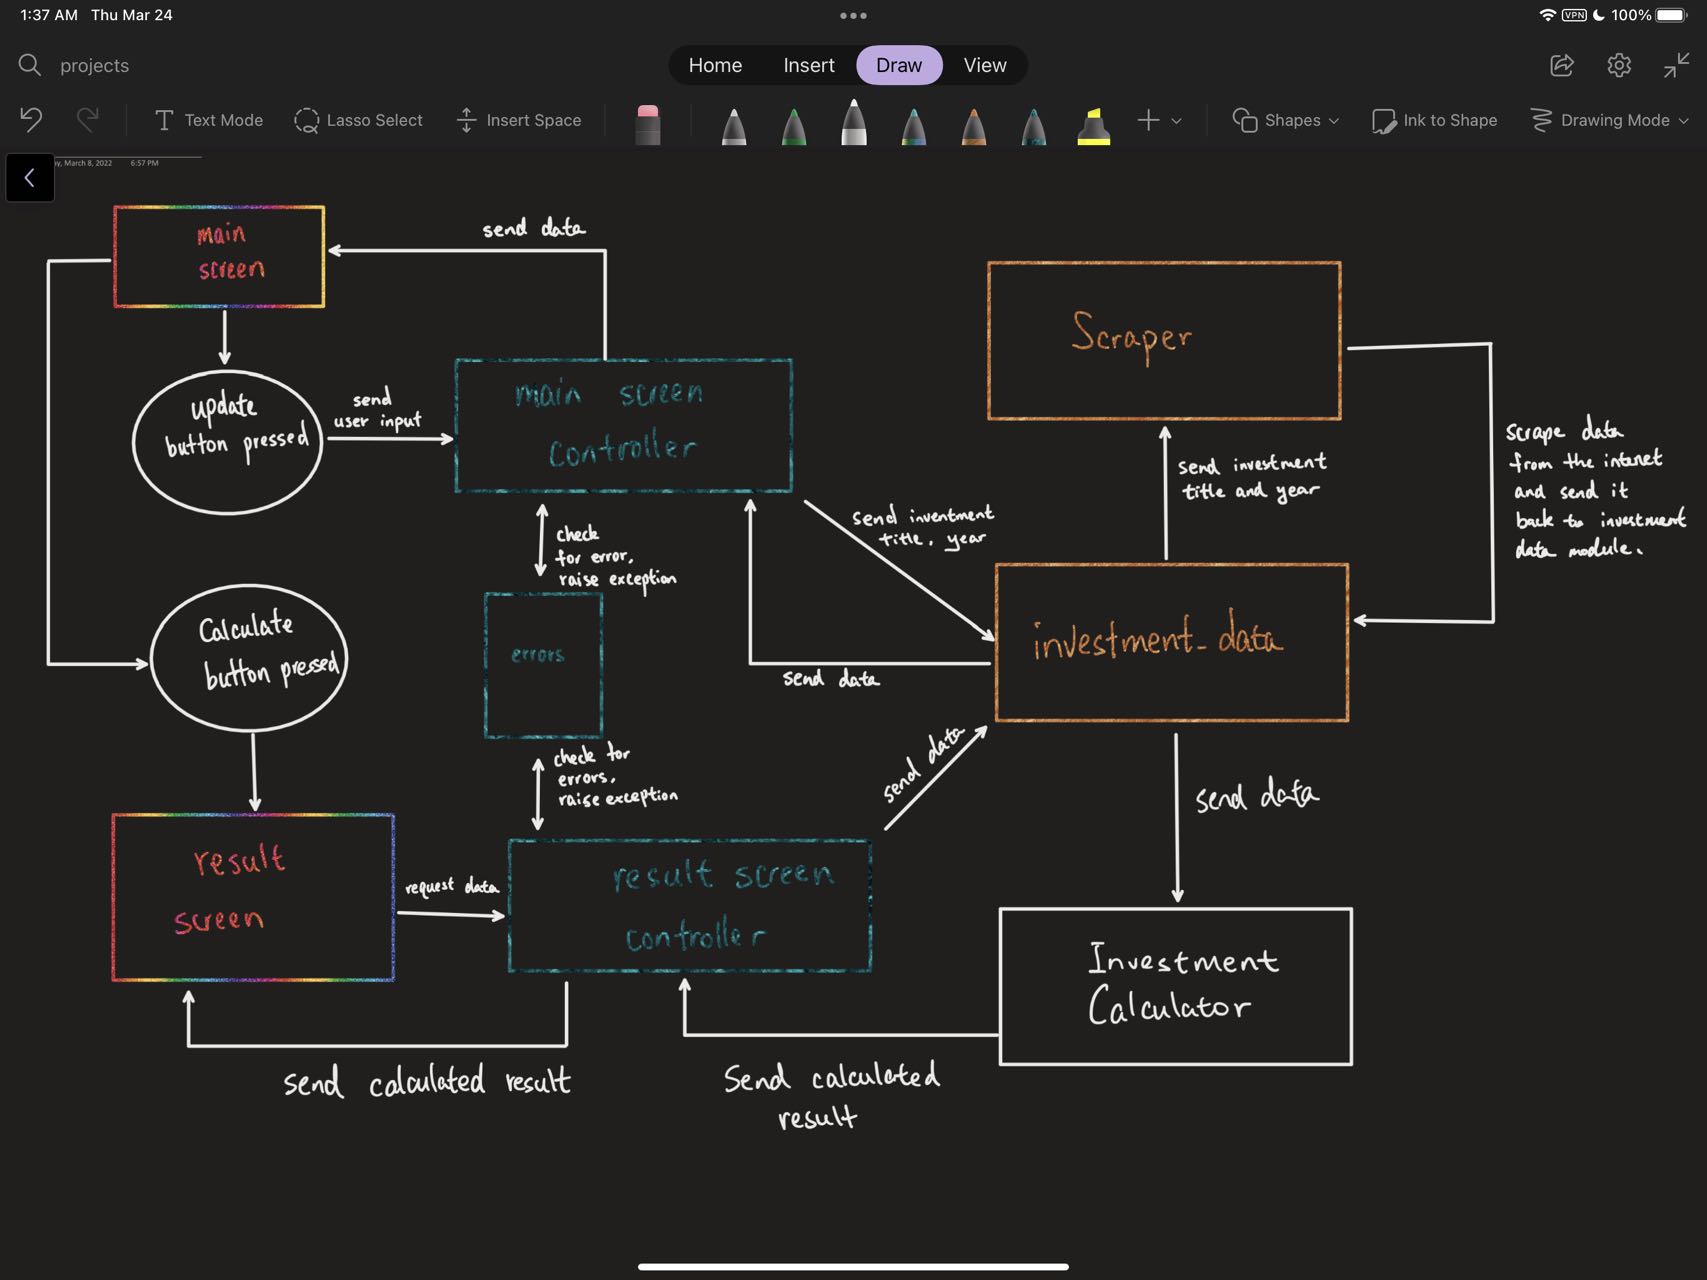 1:37 AM Thu Mar 24
VPN 100%
projects
Home Insert Draw View
Text Mode Lasso Select Insert Space Shapes Ink to Shape Drawing Mode
y, March 8, 2022 6:57 PM
main
screen
send data
update
button pressed
send
user input
main screen
controller
Scraper
scrape data
from the internet
and send it
back to investment
data module.
send investment
title and year
send inventment
title, year
check
for error,
raise exception
Calculate
button pressed
errors
investment_data
send data
check for
errors,
raise exception
send data
send data
result
screen
request data
result screen
controller
Investment
Calculator
send calculated result
Send calculated
result